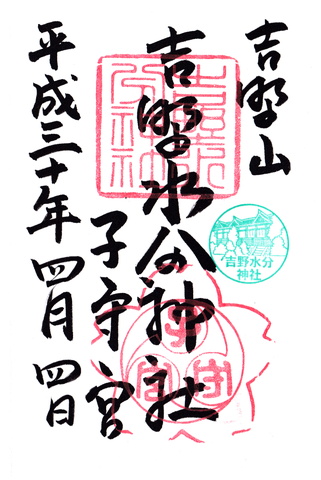 吉野山
吉野水分神社
子守宮
平成三十年四月四日
吉野水分
神社
子守宮